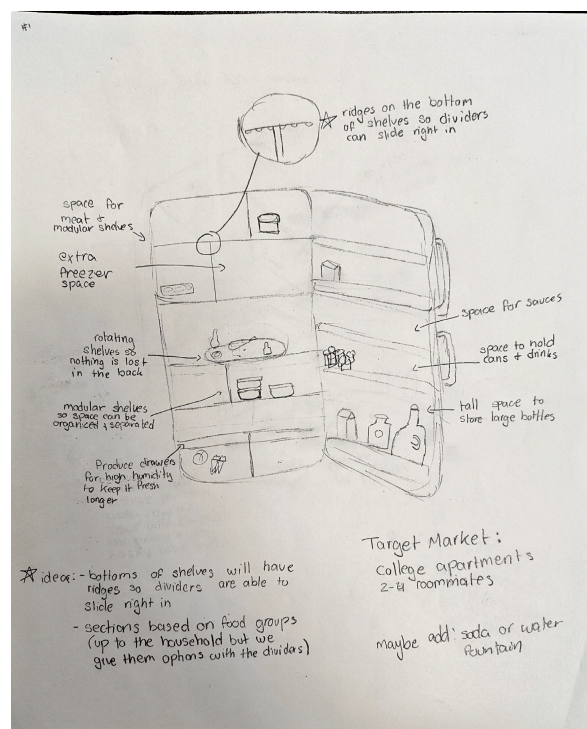 #1
☆ ridges on the bottom
of shelves so dividers
can slide right in
space for
meat +
modular shelves
extra
freezer
space
rotating
shelves so
nothing is lost
in the back
modular shelves
so space can be
organized + separated
Produce drawers
for high humidity
to keep it fresh
longer
space for sauces
space to hold
cans + drinks
tall space to
store large bottles
☆ idea: - bottoms of shelves will have
ridges so dividers are able to
slide right in
- sections based on food groups
(up to the household but we
give them options with the dividers)
Target Market:
College apartments
2-4 roommates
maybe add: soda or water
fountain